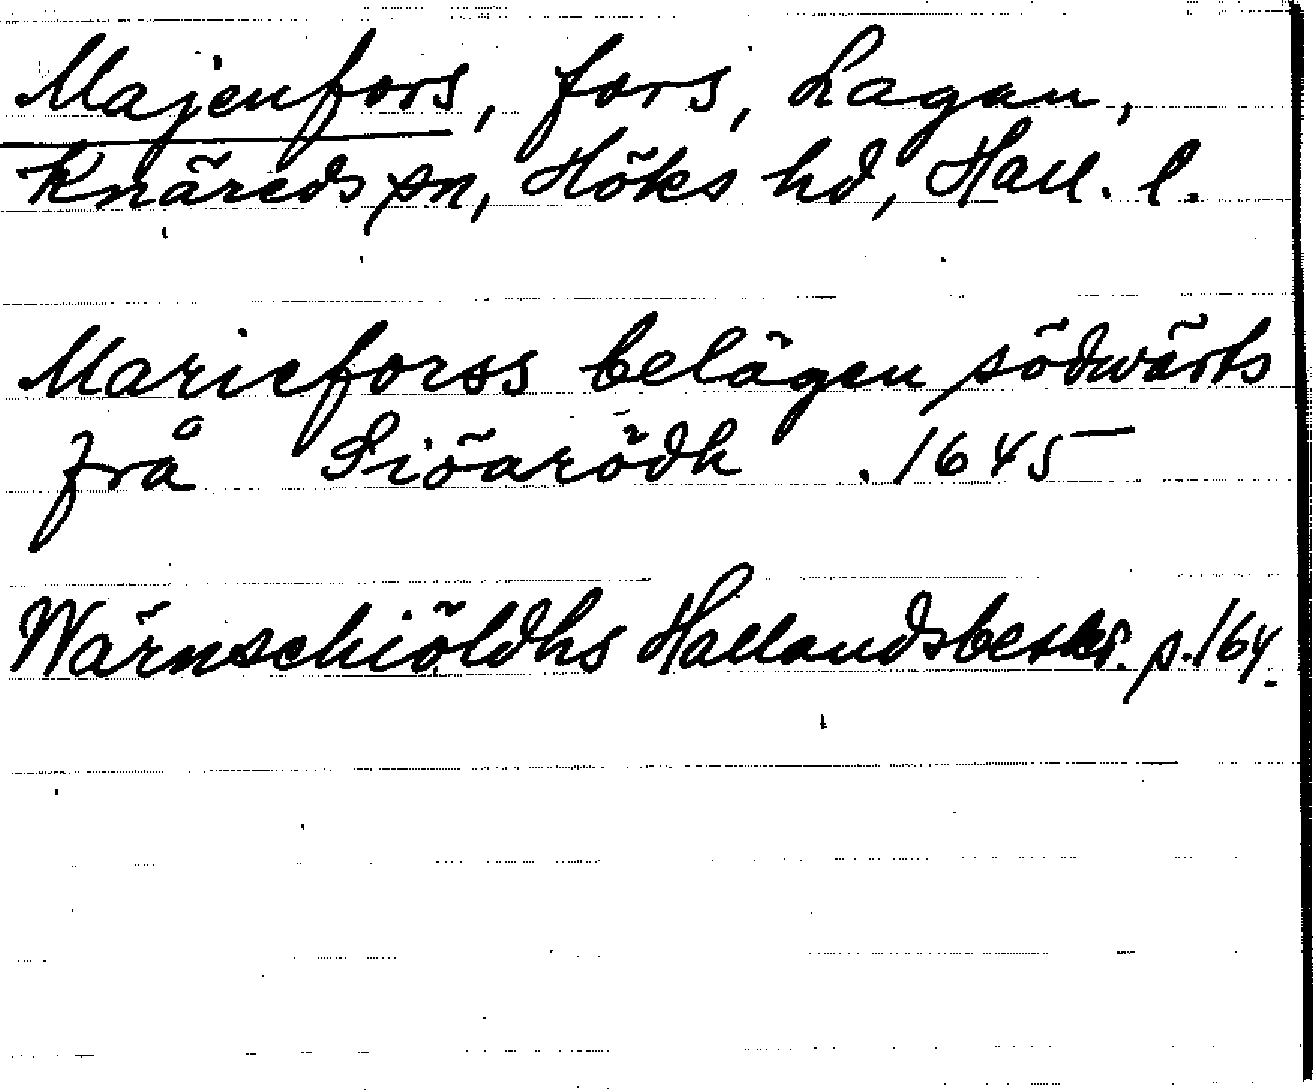 Majenfors, fors, Lagan,
Knäreds sn, Höks hd, Hall. l.
Marieforss belägen södwärts
frå Siöarödh . 1645
Wärnschiöldhs Hallandsbeskr. p. 164.